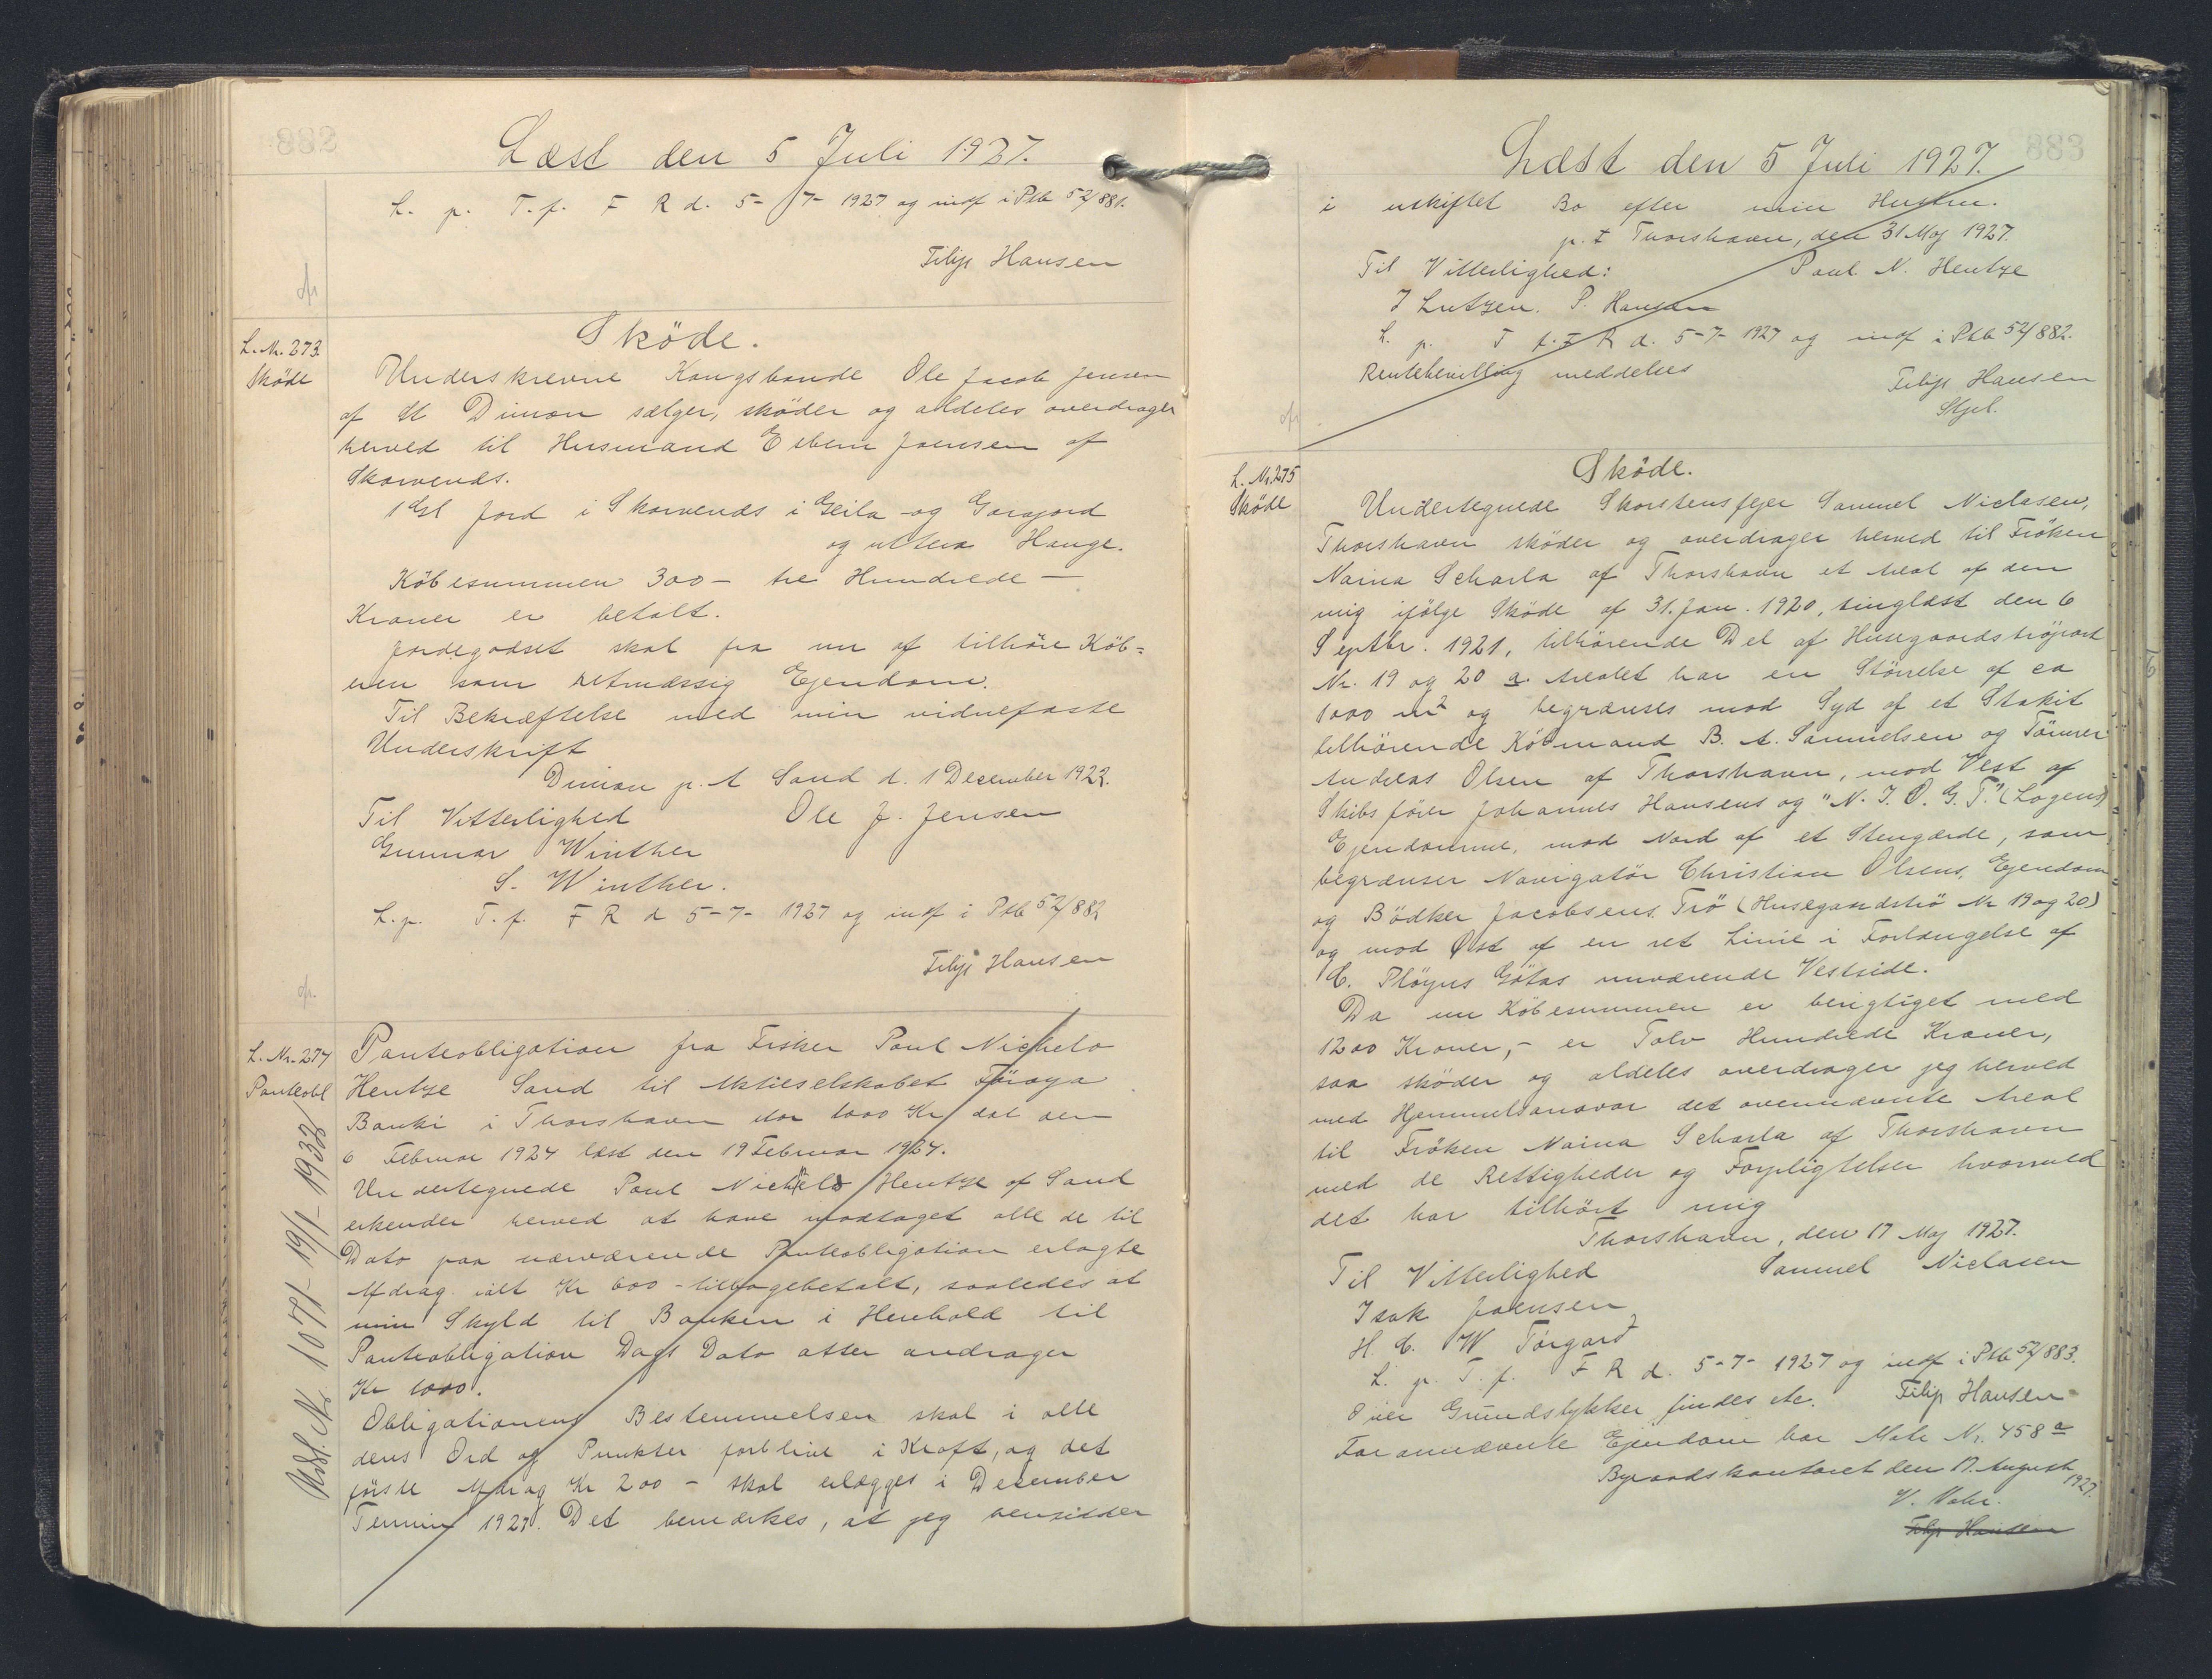 882
Læst den 5 Juli 1927.
L. p. T. f. F R d. 5-7-1927 og indf i Ptb 52/881.
Filip Hansen
L. Nr. 273.
Sköde
Sköde.
Underskrevne Kongsbonde Ole Jacob Jensen
af St Dimon sælger, sköder og aldeles overdrager
herved til Husmand Esbern Joensen af
Skarvenæs.
1 Gl Jord i Skorvenæs i Geila og Gerajord
og uttera Hauge.
Köbesummen 300 - tre Hundrede -
Kroner er betalt.
Jordegodset skal fra nu af tilhöre Köb=
eren som retmæssig Ejendom.
Til Bekræftelse med min vidnefaste
Underskrift
Dimon p. t Sand d. 1 December 1922.
Til Vitterlighed Ole J. Jensen
Gunnar Winther
S. Winther.
L. p. T. f. F R d 5-7-1927 og indf i Ptb 52/882
Filip Hansen
L. Nr. 274
Panteobl
Udsl. No 1071 - 19/1 - 1932
Panteobligation fra Fisker Poul Nichelo
Hentze Sand til Aktieselskabet Föroya
Banki i Thorshavn stor 1000 Kr dat den
6 Februar 1924 læst den 19 Februar 1924.
Undertegnede Poul Nichelo Hentze af Sand
erkender herved at have modtaget alle de til
Dato paa nærværende Panteobligation erlagte
Afdrag ialt Kr 600 - tilbagebetalt, saaledes at
min Skyld til Banken i Henhold til
Panteobligation Dags Dato atter andrager
Kr 1000.
Obligationens Bestemmelser skal i alle
dens Ord og Punkter forblive i Kraft, og det
förste Afdrag Kr 200 - skal erlægges i December
Termin 1927. Det bemærkes, at jeg hensidder
883
Læst den 5 Juli 1927.
i uskiftet Bo efter min Hustru.
p. t Thorshavn, den 31 Maj 1927.
Til Vitterlighed: Poul N. Hentze
J Lutzen. P. Hansen
L. p. T f. F R d. 5-7-1927 og indf i Ptb 52/882.
Rentebevilling meddeles
Filip Hansen
Stjel.
L. Nr. 275
Sköde
Sköde.
Undertegnede Skorstensfejer Samuel Niclasen,
Thorshavn sköder og overdrager herved til Fröken
Naina Scharla af Thorshavn et Areal af den
mig ifölge Sköde af 31. Jan. 1920, tinglæst den 6
Septbr. 1921, tilhörende Del af Husegaardströpart
Nr. 19 og 20 a. Arealet har en Störrelse af ca
1000 m2 og begrænses mod Syd af et Stakit
tilhörende Köbmand B. A. Samuelsen og Tömrer
Andreas Olsen af Thorshavn, mod Vest af
Skibsförer Johannes Hansens og "N. I. O. G. T." (Logens)
Ejendomme, mod Nord af et Stengærde, som
begrænser Navigatör Christian Olsens Ejendom
og Bödker Jacobsens Trö (Husegaardströ Nr 19 og 20)
og mod Øst af en ret Linie i Forlængelse af
C. Plöyns Götas nuværende Vestside.
Da nu Köbesummen er berigtiget med
1200 Kroner, - er Tolv Hundrede Kroner,
saa sköder og aldeles overdrager jeg herved
med Hjemmelsansvar det ovennævnte Areal
til Fröken Naina Scharla af Thorshavn
med de Rettigheder og Forpligtelser hvormed
det har tilhört mig
Thorshavn, den 17 Maj 1927.
Til Vitterlighed Samuel Niclasen
Isak Joensen
H. C. W Torgard
L. p. T. f. F R d. 5-7-1927 og indf i Ptb 52/883.
Over Grundstykker findes etc. Filip Hansen
Forannævnte Ejendom har Matr Nr. 458 a
Byraadskontoret den 17. August 1927.
V. Vahr.
Filip Hansen